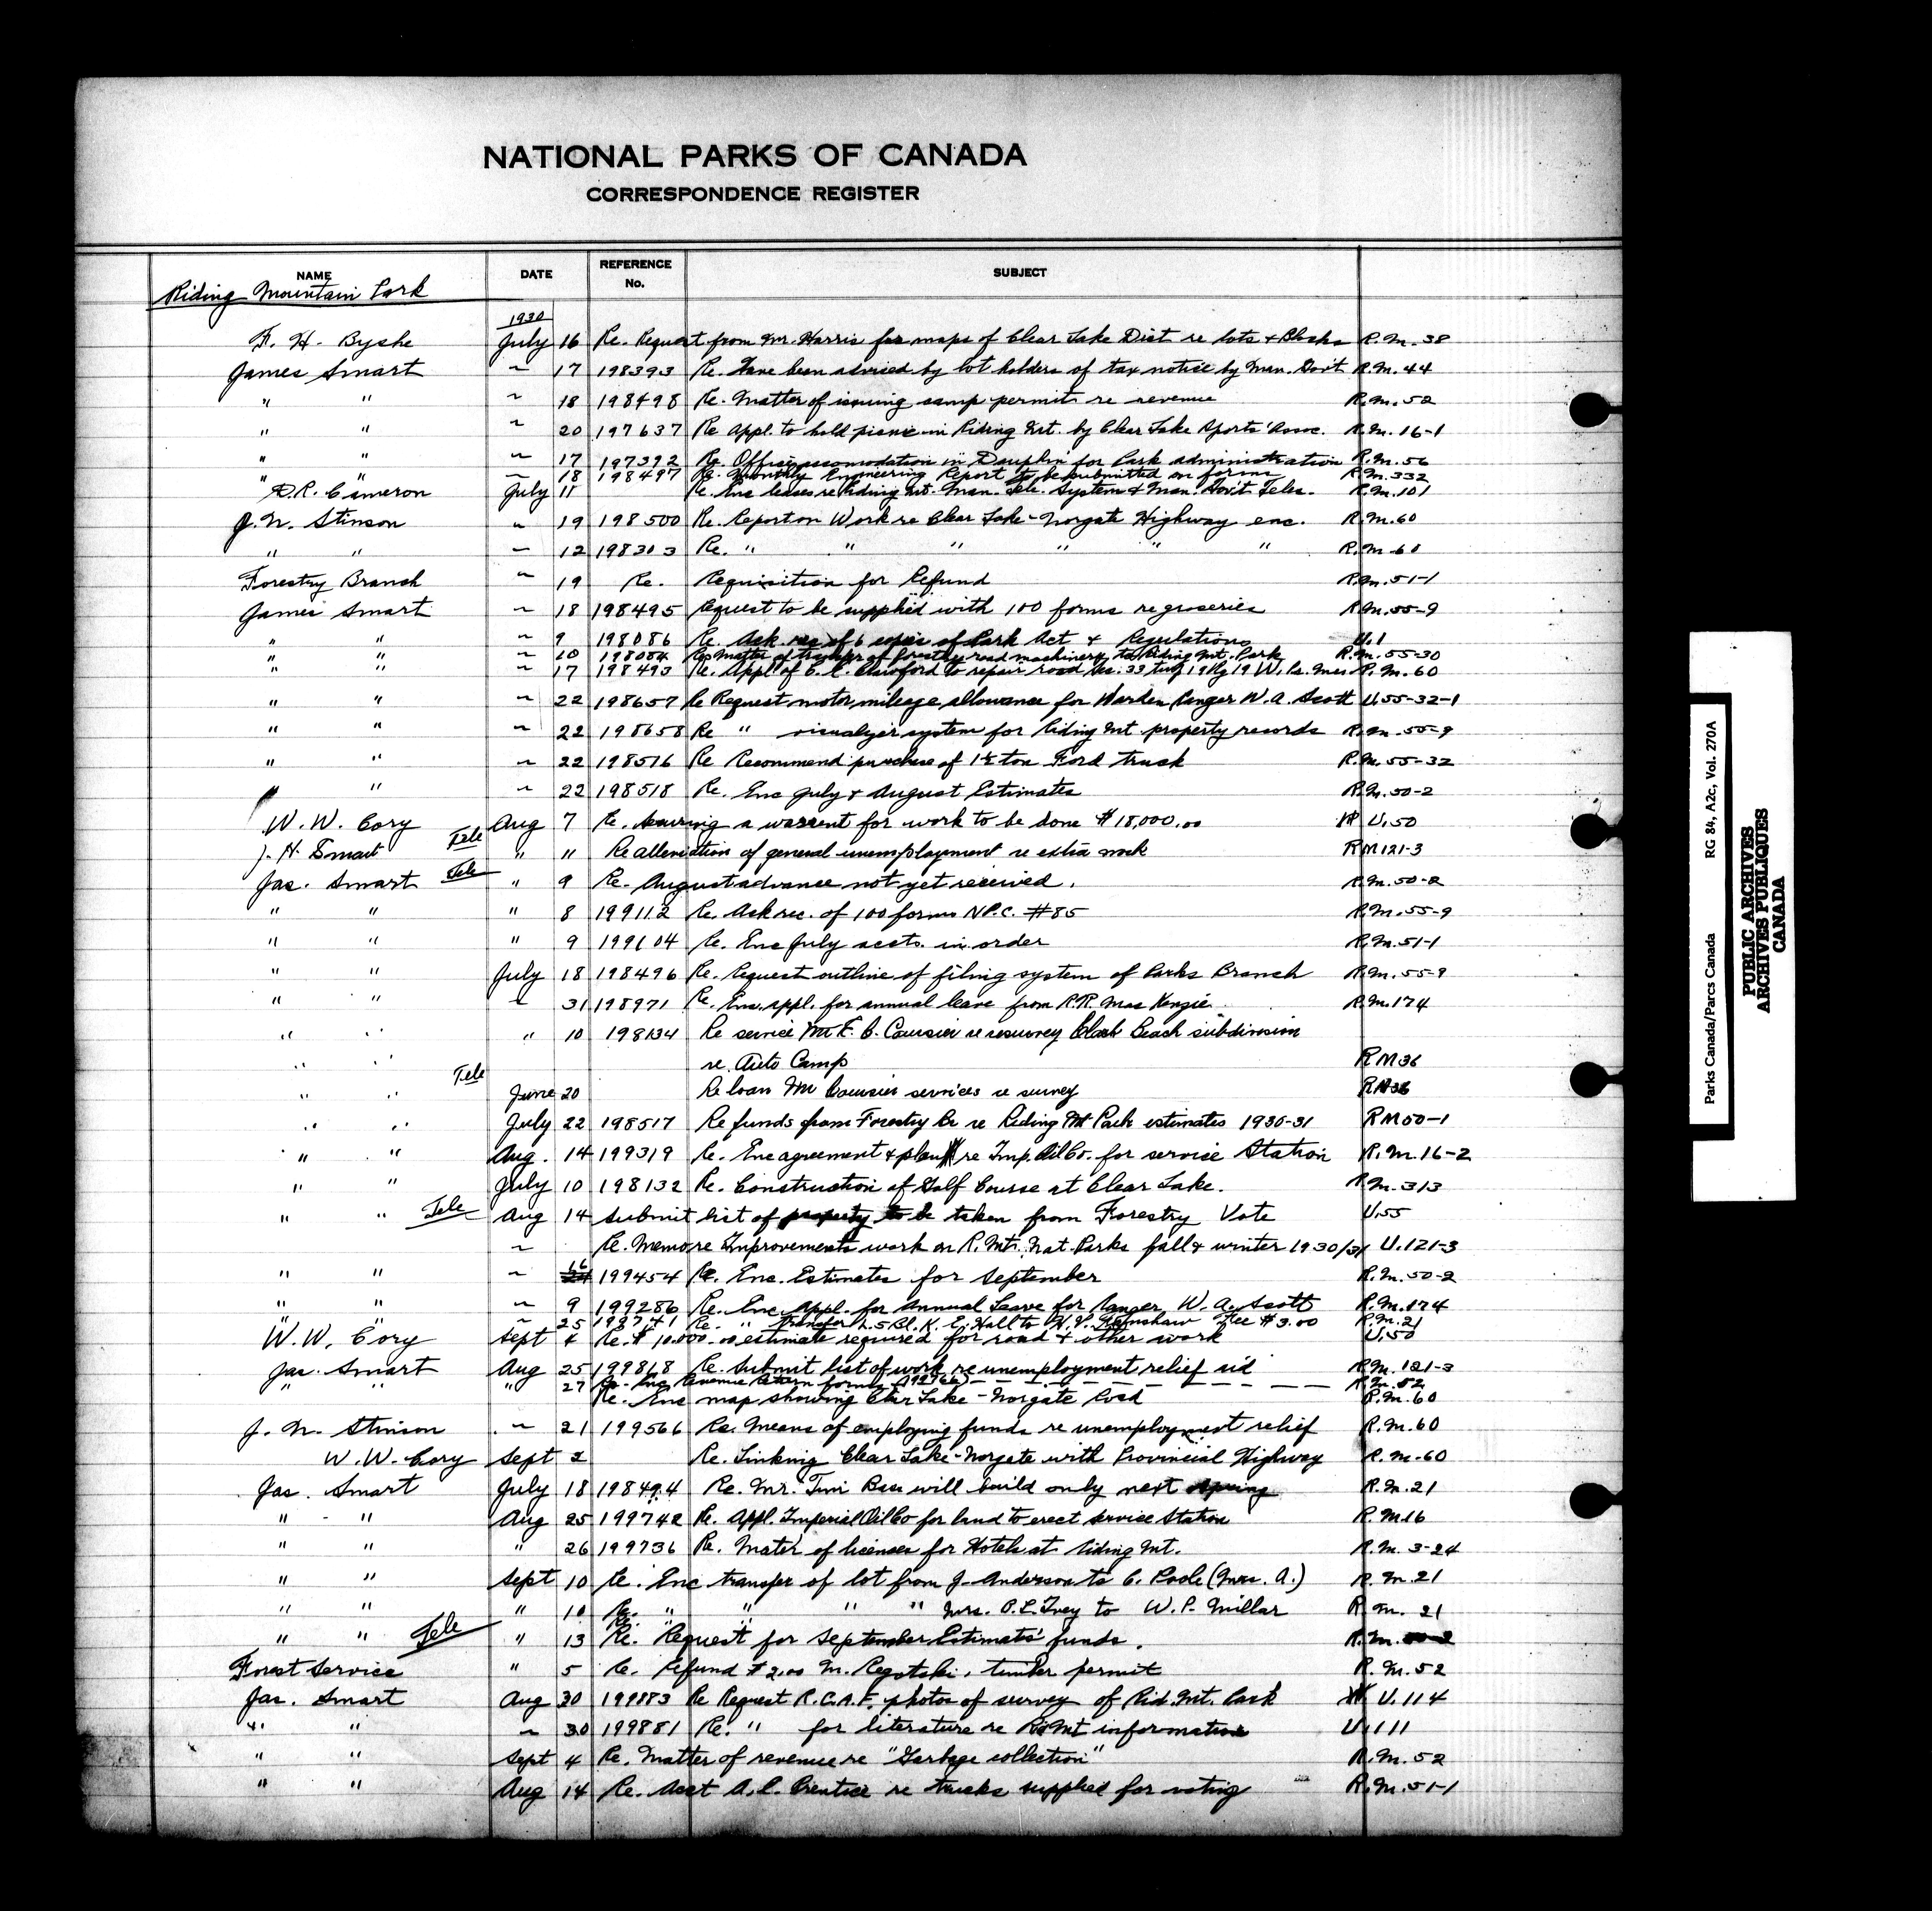 NATIONAL PARKS OF CANADA
CORRESPONDENCE REGISTER
NAME DATE REFERENCE No. SUBJECT
Riding Mountain Park
1930
F. H. Byshe July 16 Re. Request from Mr. Harris for maps of Clear Lake Dist re lots & Blocks R.M. 38
James Smart " 17 198393 Re. Have been advised by lot holders of tax notice by Man. Gov't R.M. 44
" " " 18 198498 Re. Matter of issuing camp permits re revenue R.M. 52
" " " 20 197637 Re Appl. to hold picnic in Riding Mt. by Clear Lake Sports' Assoc. R.M. 16-1
" " " 17 197392 Re. Office accomodation in Dauphin for Park administration R.M. 56
" " " 18 198497 Re. Monthly Engineering Report to be submitted on forms R.M. 332
D.R. Cameron July 11 Re. Enc leases re Riding Mt. Man. Tele. System & Man. Gov't Teles. R.M. 101
J.N. Stinson " 19 198500 Re. Report on Work re Clear Lake-Norgate Highway enc. R.M. 60
" " " 12 198303 Re. " " " " " " R.M. 60
Forestry Branch " 19 Re. Requisition for Refund R.M. 51-1
James Smart " 18 198495 Request to be supplied with 100 forms re groceries R.M. 55-9
" " " 9 198086 Re. Ask. rec of 6 copies of Park Act & Regulations U.1
" " " 10 198084 Re Matter of transfer of Forestry road machinery to Riding Mt. Park R.M. 55-30
" " " 17 198493 Re. Appl. of C. C. Crawford to repair road Sec. 33 Twp 19 Rg 19 W. R.M. 60
" " " 22 198657 Re Request motor mileage allowance for Warden Ranger W.A. Scott U.55-32-1
" " " 22 198658 Re " visualizer system for Riding Mt property records R.M. 55-9
" " " 22 198516 Re Recommend purchase of 1½ ton Ford truck R.M. 55-32
" " " 22 198518 Re. Enc July & August Estimates R.M. 50-2
W. W. Cory Aug 7 Re. Securing a warrent for work to be done $18,000.00 U.50
J. H. Smart Tele " 11 Re alleviation of general unemployment re extra work RM 121-3
Jas. Smart Tele " 9 Re. August advance not yet received. R.M. 50-2
" " " 8 199112 Re. Ask rec. of 100 forms N.P.C. #85 R.M. 55-9
" " " 9 199104 Re. Enc July accts. in order R.M. 51-1
" " July 18 198496 Re. Request outline of filing system of Parks Branch R.M. 55-9
" " " 31 198971 Re. Enc. appl. for annual leave from R.R. MacKenzie. R.M. 174
" " " 10 198134 Re service Mr. F. C. Coursier re resurvey Clark Beach subdivision
re. Auto Camp RM 36
" " Tele June 20 Re loan Mr Coursier services re survey RM 36
" " July 22 198517 Re funds from Forestry Br re Riding Mt Park estimates 1930-31 RM 50-1
" " Aug. 14 199319 Re. Enc agreement & plans re Imp. Oil Co. for service Station R.M. 16-2
" " July 10 198132 Re. Construction of Golf Course at Clear Lake. R.M. 313
" " Tele Aug 14 Submit list of property to be taken from Forestry Vote U.55
" Re. Memo re Improvements work on R. Mt. Nat. Parks fall & winter 1930/31 U.121-3
" " " 16 199454 Re. Enc. Estimates for September R.M. 50-2
" " " 9 199286 Re. Enc. Appl. for Annual Leave for Ranger W. A. Scott R.M. 174
" " " 25 199741 Re. " Transfer L.5 Bl. K. E. Hall to Fee $3.00 R.M. 21
W. W. Cory Sept 4 Re. $10,000.00 estimate required for road & other work U.50
Jas. Smart Aug 25 199818 Re. Submit list of work re unemployment relief aid R.M. 121-3
" " " 27 Re. Enc Revenue Return forms R.M. 52
Re. Enc map showing Clear Lake-Norgate Road R.M. 60
J. N. Stinson " 21 199566 Re. Means of employing funds re unemployment relief R.M. 60
W. W. Cory Sept 2 Re. Linking Clear Lake-Norgate with Provincial Highway R.M. 60
Jas. Smart July 18 198494 Re. Mr. Tim Bass will build only next spring R.M. 21
" " Aug 25 199742 Re. Appl. Imperial Oil Co for land to erect service Station R.M. 16
" " " 26 199736 Re. Mater of licenses for Hotels at Riding Mt. R.M. 3-24
" " Sept 10 Re. Enc transfer of lot from J. Anderson to C. Poole (Mrs. A.) R.M. 21
" " " 10 Re. " " " " Mrs. P. L. Ivey to W. P. Millar R.M. 21
" " Tele " 13 Re. Request for September Estimates' funds. R.M.
Forest Service " 5 Re. Refund $2.00 M. Regotski, timber permit R.M. 52
Jas. Smart Aug 30 199883 Re Request R.C.A.F. photos of survey of Rid. Mt. Park U.114
" " " 30 199881 Re. " for literature re Rid Mt information U.111
" " Sept 4 Re. Matter of revenue re "Garbage collection" R.M. 52
" " Aug 14 Re. Acct A. C. Prentice re trucks supplied for voting R.M. 51-1
Parks Canada/Parcs Canada RG 84, A2c, Vol. 270A
PUBLIC ARCHIVES
ARCHIVES PUBLIQUES
CANADA